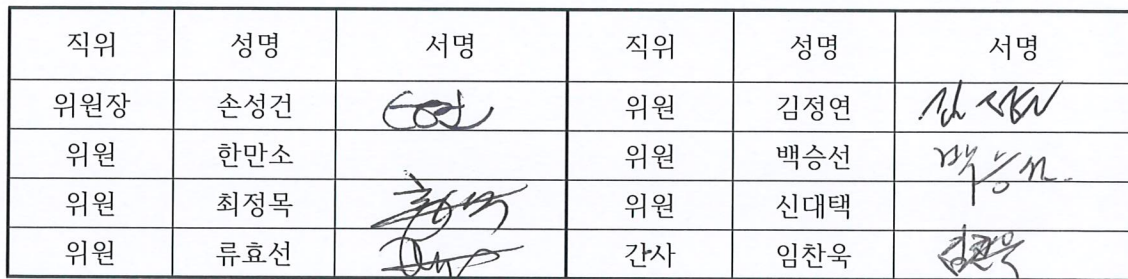 직위 성명 서명 직위 성명 서명
위원장 손성건 위원 김정연
위원 한만소 위원 백승선 백승선
위원 최정목 위원 신대택
위원 류효선 간사 임찬욱 임찬욱